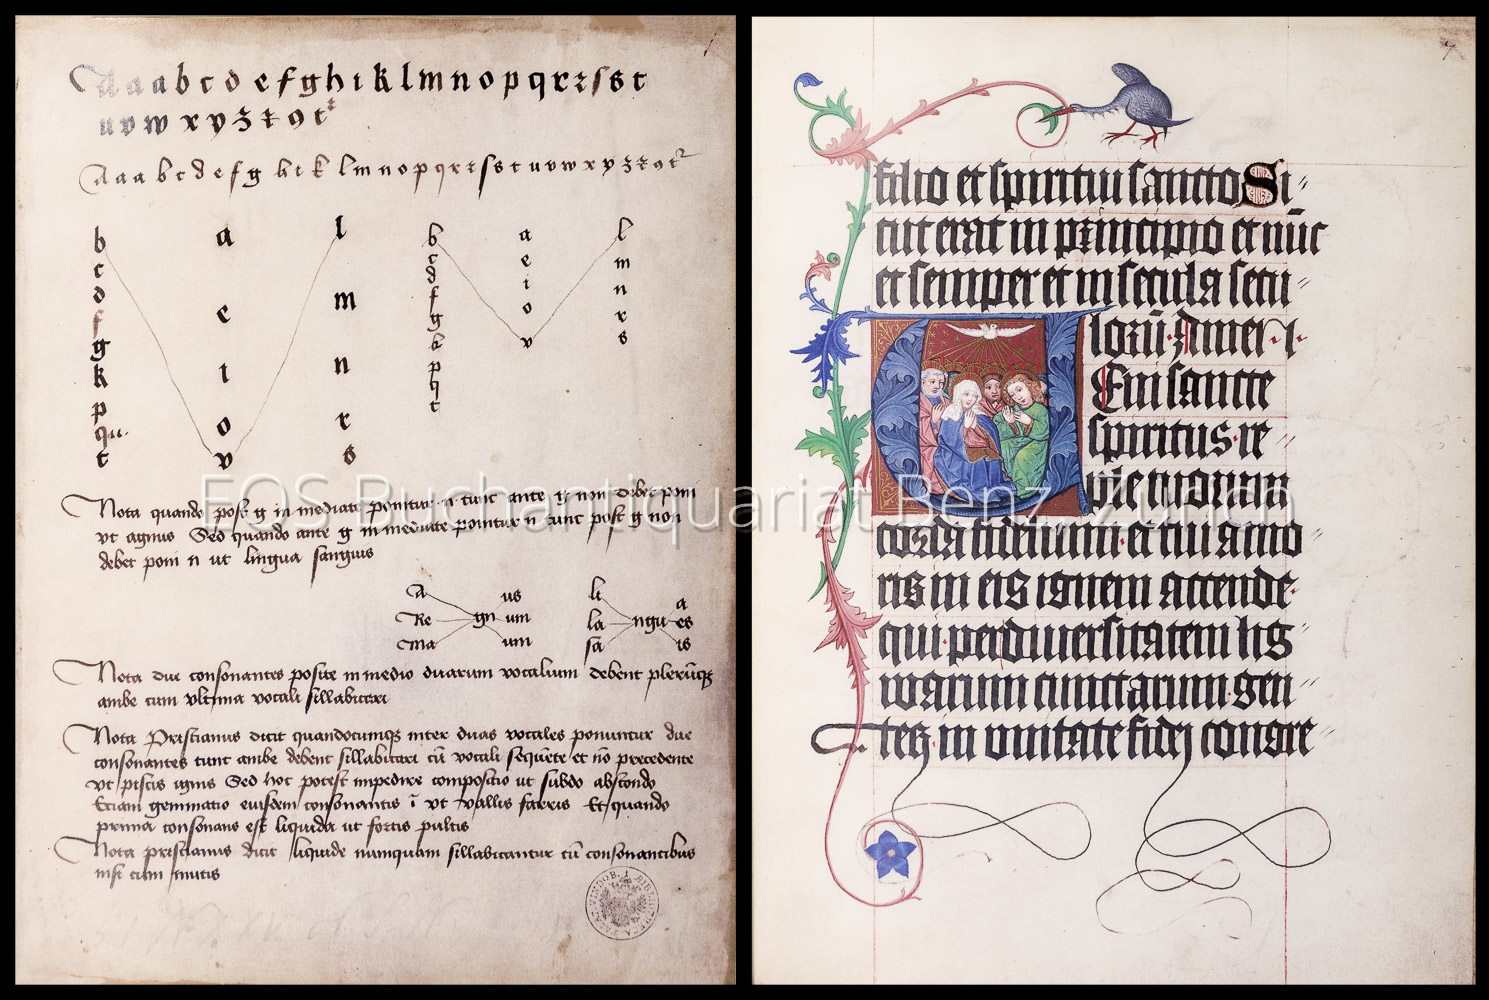 A a a b c d e f g h i k l m n o p q r z ſ s t
u v w x y z
A a a b c d e f g h i k l m n o p q r z ſ s t u v w x y z
b a l b a l
c e m c e m
d i n d i n
f o r f o r
g v s g v s
k k
p p
qu. q
t t
Nota quando post g in mediate ponitur n tunc ante g n non debet poni
vt agnus Sed quando ante g in mediate ponitur n tunc post g non
debet poni n ut lingua sanguis
A us li a
Re gn um la ngu es
Ma um sa is
Nota due consonantes posite in medio duarum vocalium debent plerūqꝫ
ambe cum vltima vocali sillabicari
Nota Priscianus dicit quandocumqꝫ inter duas vocales ponuntur due
consonantes tunc ambe debent sillabicari cū vocali sequēte et nō precedente
vt piscis ignis Sed hoc potest impedire compositio ut subdo abscondo
Etiam geminatio eiusdem consonantis ī vt vallis farris Et quando
prima consonans est liquida ut fortis pultis
Nota priscianus dicit liquide numquam sillabicantur cū consonantibus
nisi cum mutis
filio et spiritui sancto Si
cut erat in principio et nūc
et semper et in secula secu
lorū. Amen.
Veni sancte
spiritus. re
ple tuorum
corda fidelium. et tui amo
ris in eis ignem accende.
qui. per diuersitatem lig
warum cunctarum. gen
tes. in vnitate fidej congre
EOS Buchantiquariat Benz, Zürich